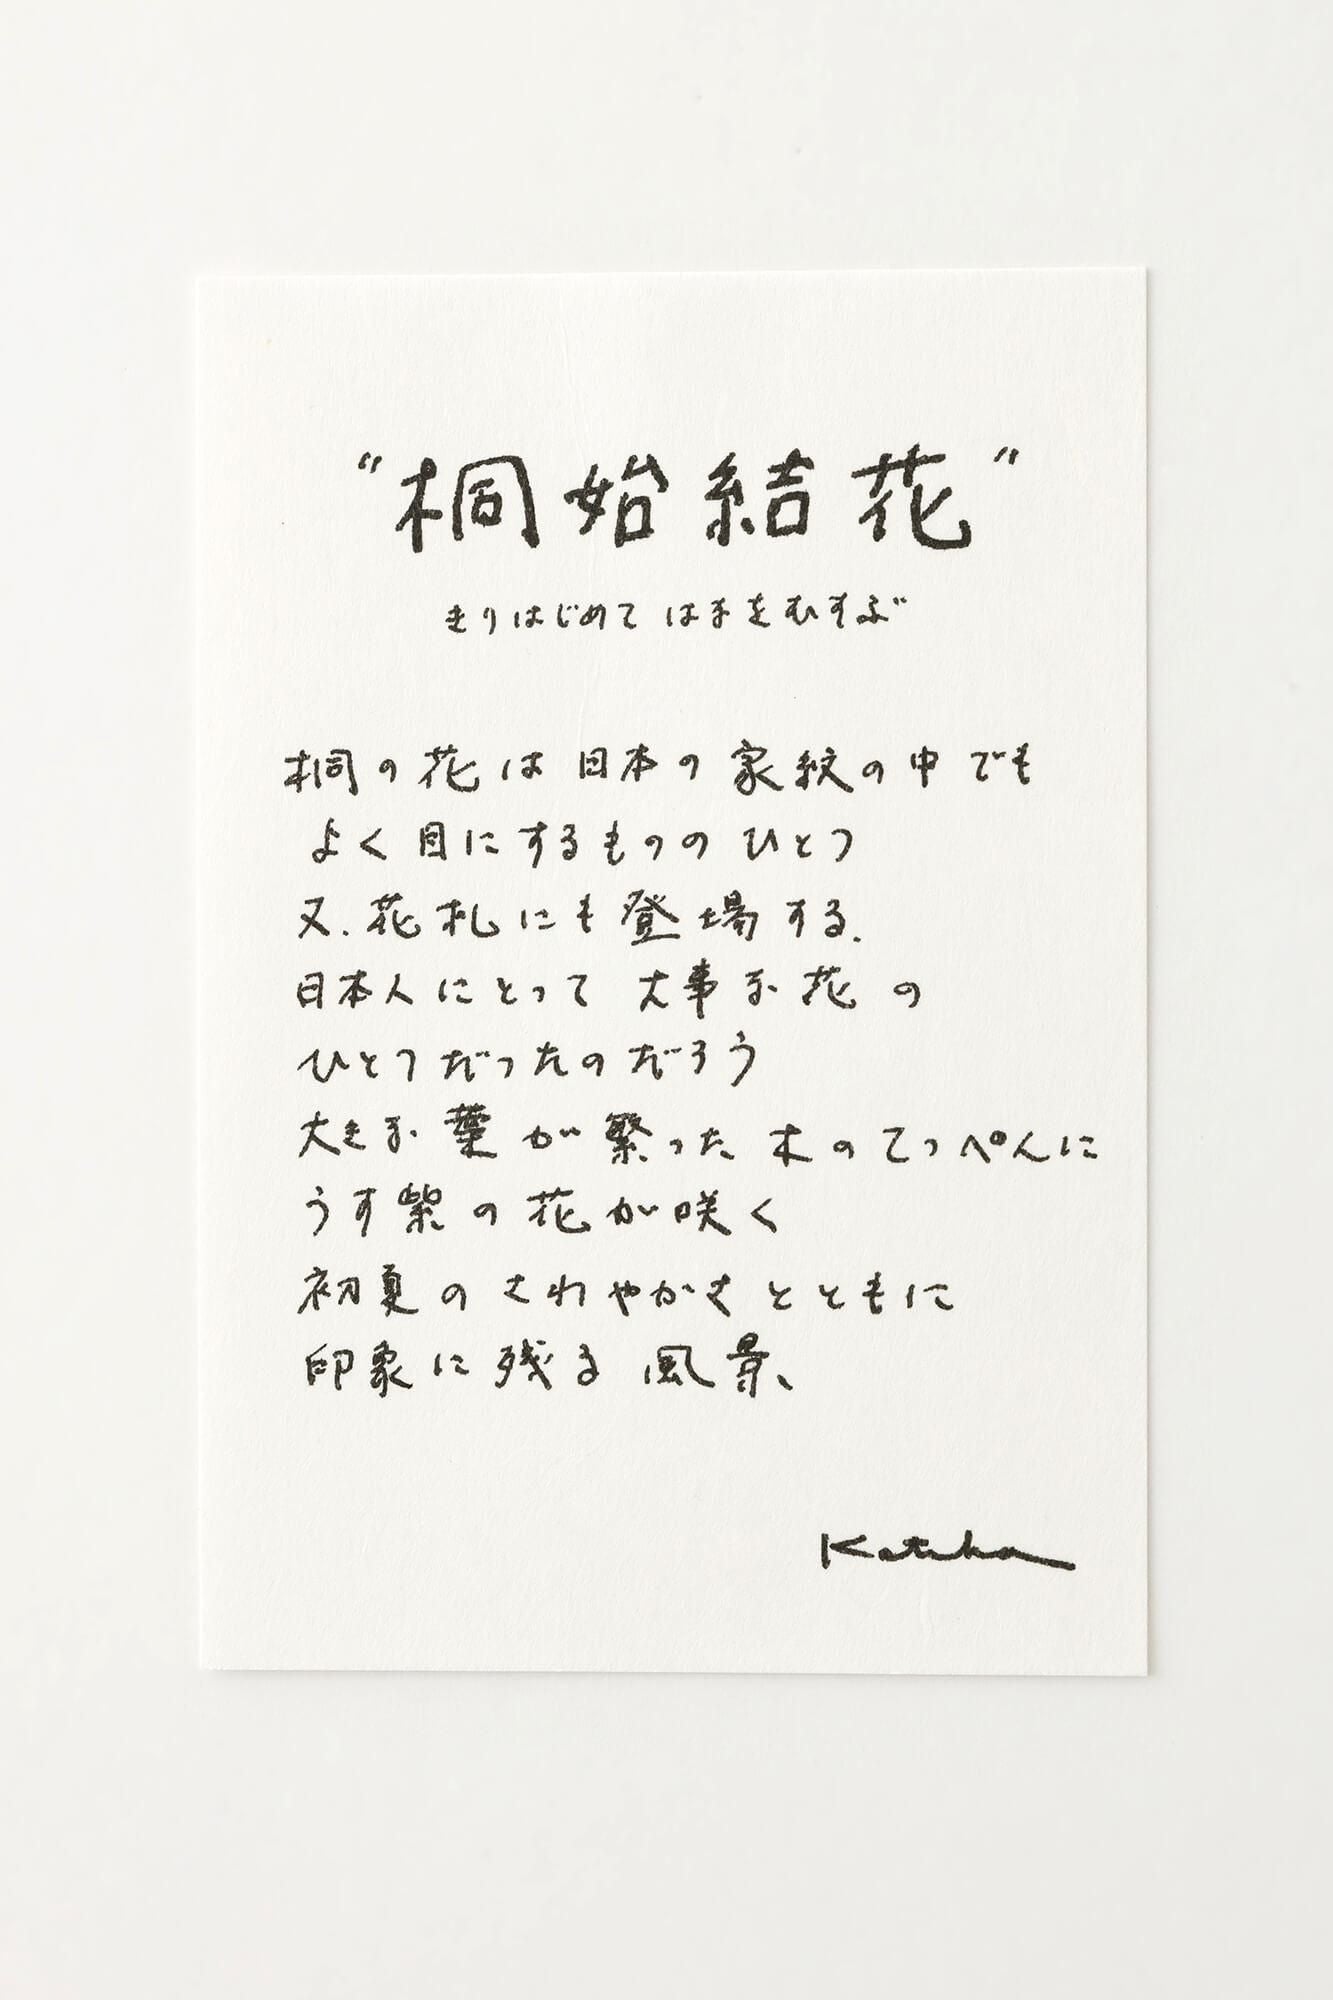 "桐始結花"
きりはじめて はなをむすぶ
桐の花は日本の家紋の中でも
よく目にするもののひとつ
又、花札にも登場する。
日本人にとって 大事な花の
ひとつだったのだろう
大きな葉が繁った木のてっぺんに
うす紫の花が咲く
初夏のさわやかさとともに
印象に残る風景、